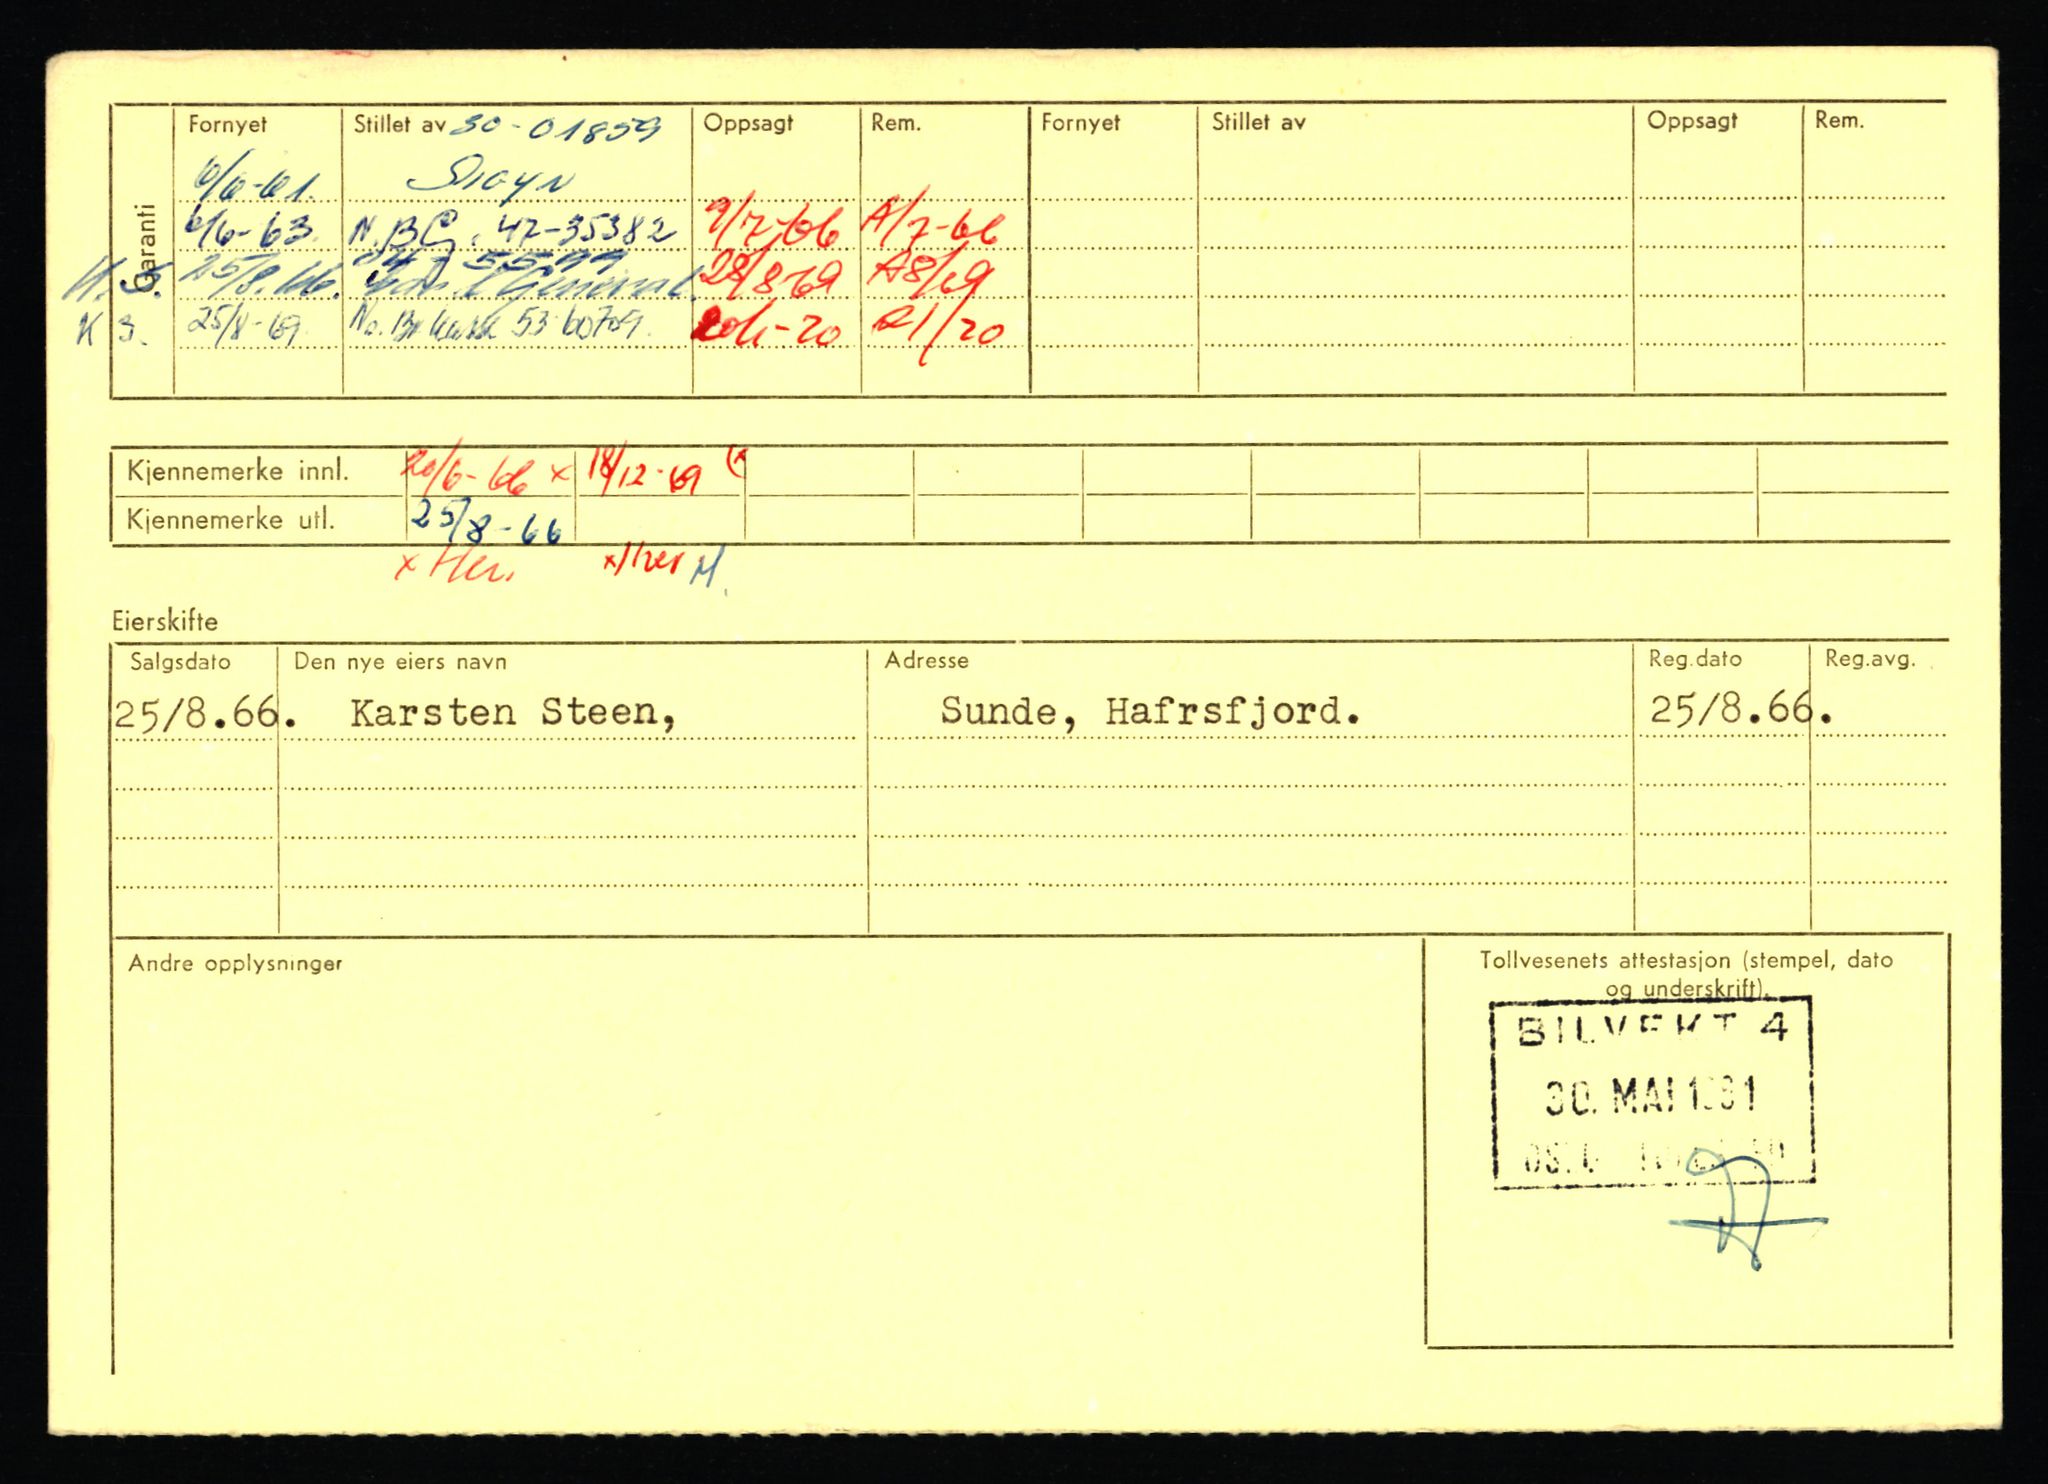 Garanti
Fornyet Stillet av 30-01859 Oppsagt Rem. Fornyet Stillet av Oppsagt Rem.
6/6-61.
6/6-63. N.B.G. 47-35382 9/7-66 A/7-66
25/8.66. General. 28/8-69 A8/69
K 3. 25/8-69 53 60709.
Kjennemerke innl. 20/6-66 x 18/12-69
Kjennemerke utl. 25/8-66
x Her. x Her M.
Eierskifte
Salgsdato Den nye eiers navn Adresse Reg.dato Reg.avg.
25/8.66. Karsten Steen, Sunde, Hafrsfjord. 25/8.66.
Andre opplysninger
Tollvesenets attestasjon (stempel, dato
og underskrift).
BILVEKT 4
30. MAI 1961